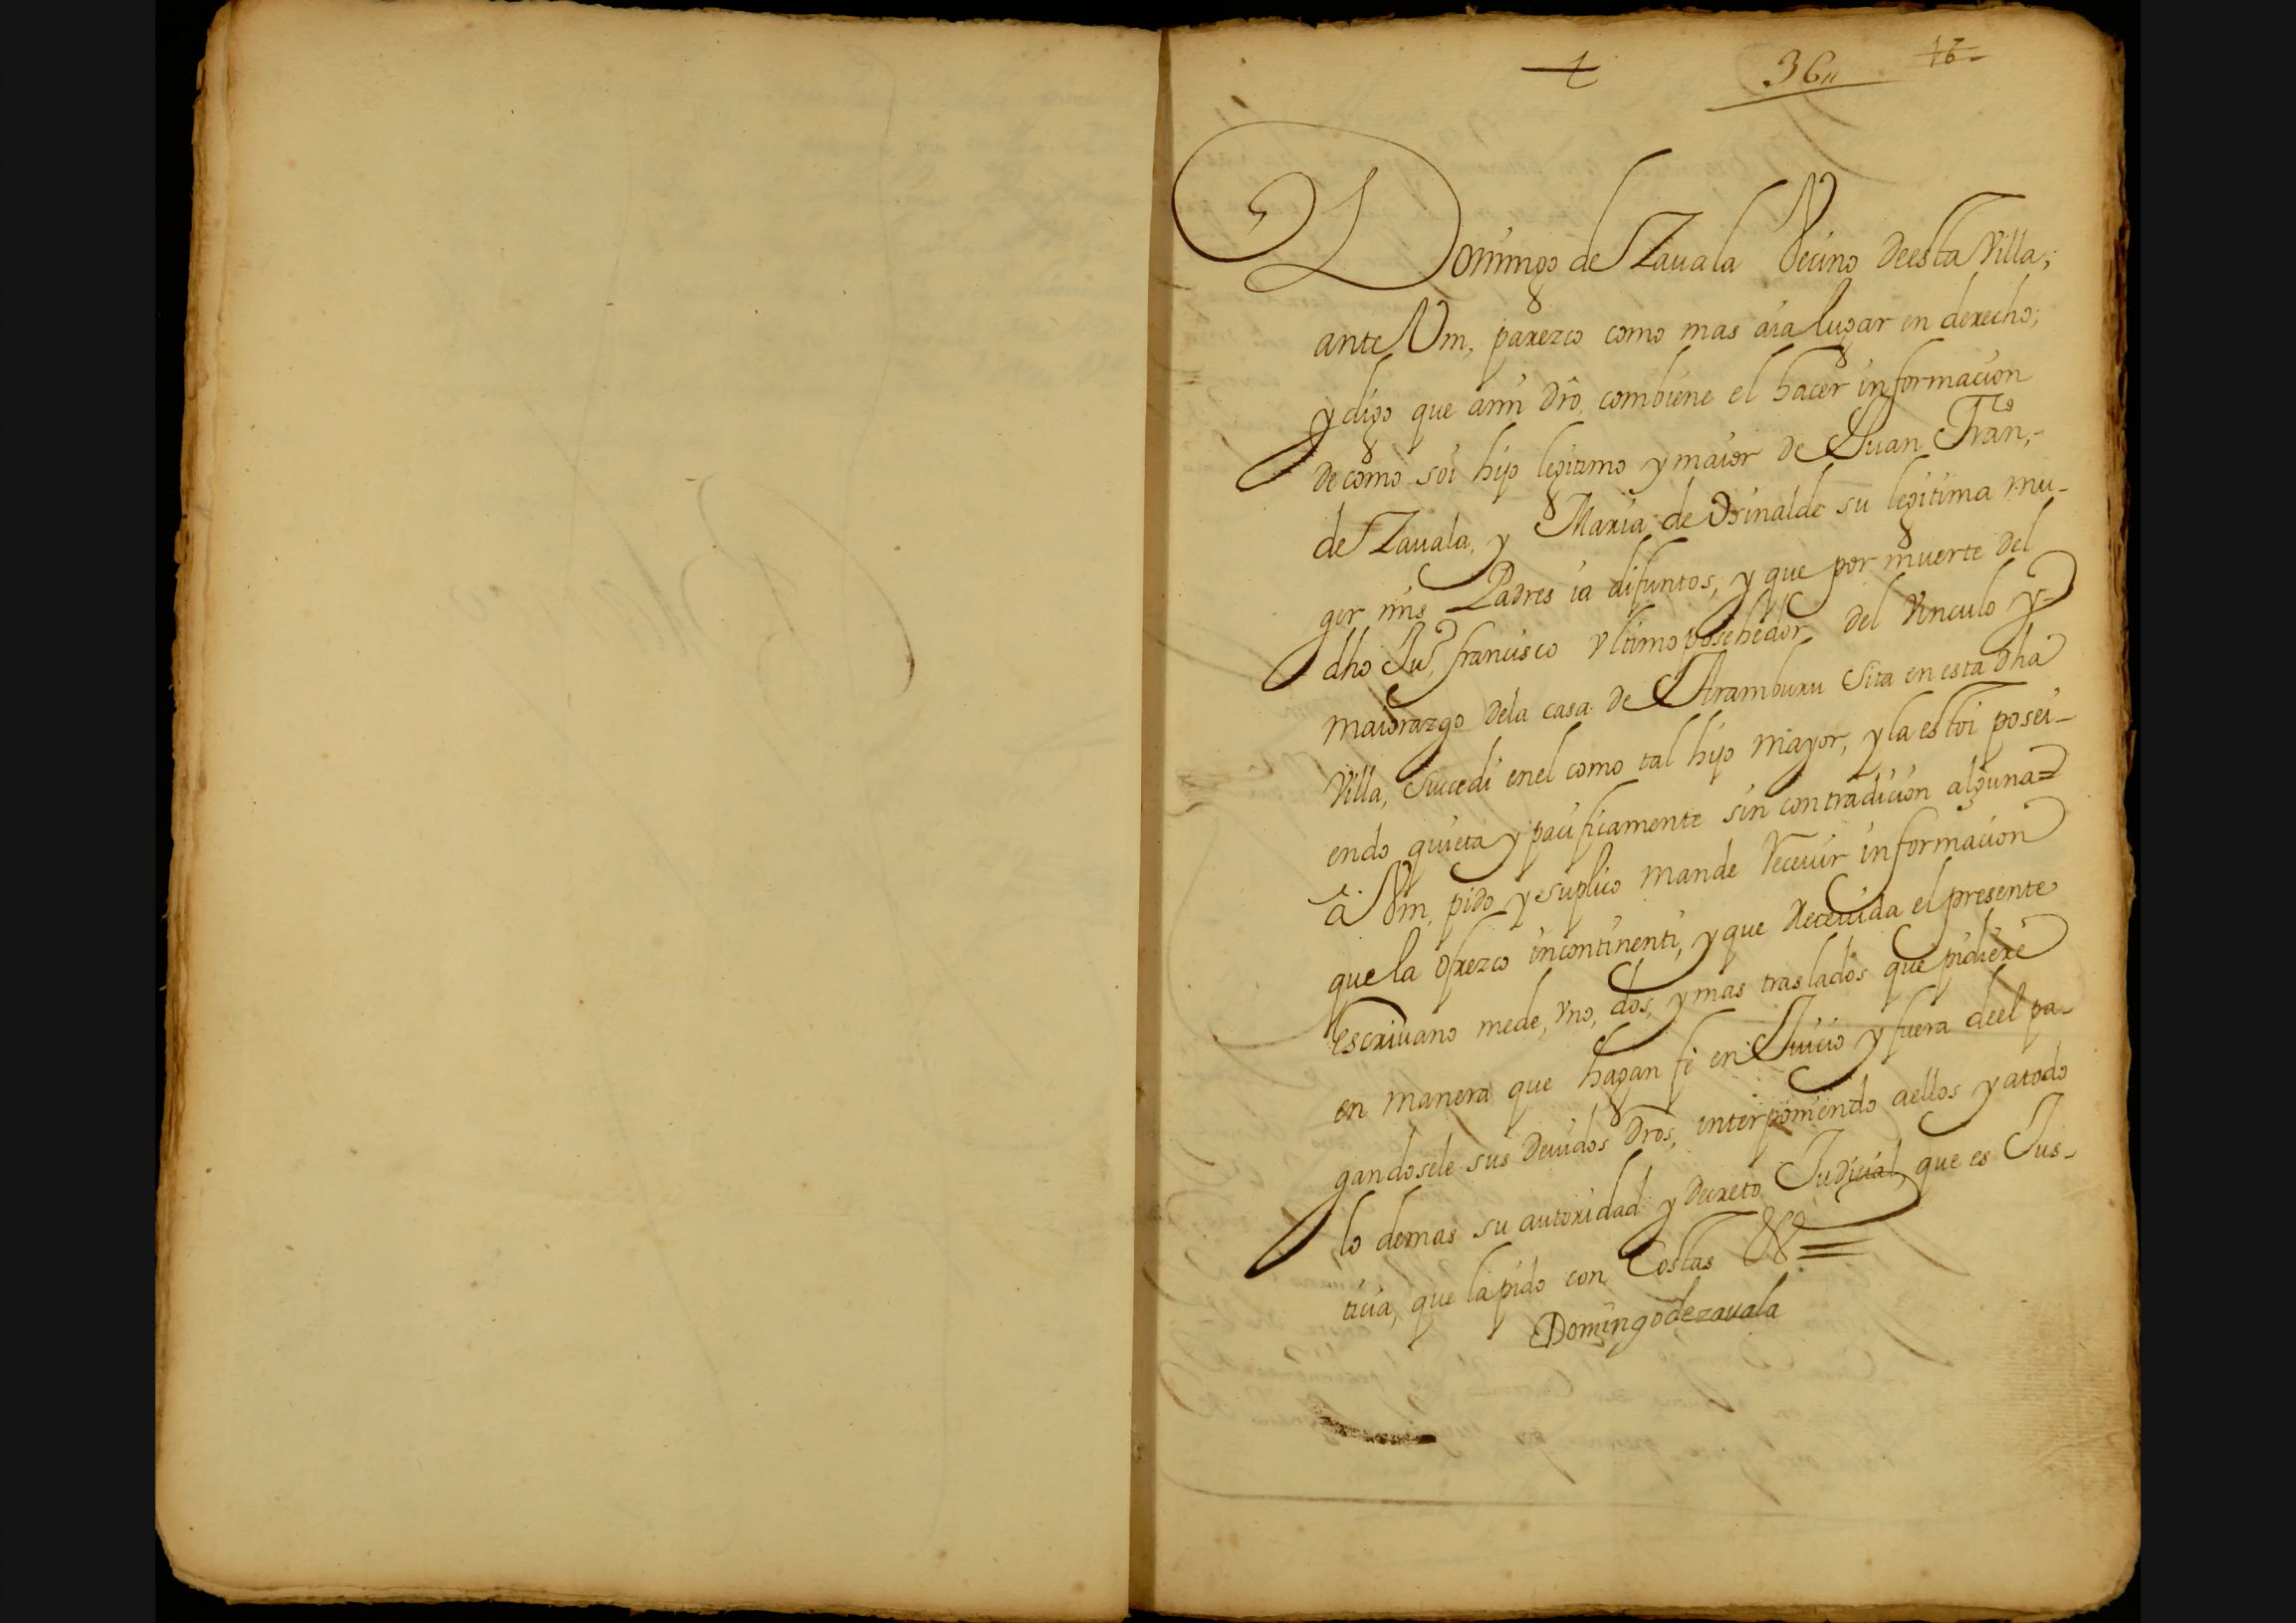 36
16
Domingo de Zauala Vecino de esta Villa;
ante Vm, parezco como mas aia lugar en derecho;
y digo que ami dro, combiene el hacer informacion
de como soi hijo legitimo y maior de Juan Fran,co
de Zauala, y Maria de Osinalde su legitima mu-
ger mis Padres ia difuntos, y que por muerte del
dho Jun, francisco vltimo posehedor, del Vinculo y
maiorazgo dela casa de Aramburu Sita en esta dha
Villa, Succedi enel como tal hijo mayor, y la estoi posei-
endo quieta y pacificamente sin contradicion alguna=
à Vm, pido y suplico mande Receuir informacion
que la ofrezco incontinenti, y que Receuida el presente
escriuano mede, vno, dos, y mas traslados que pidiere
en manera que hagan fe en Juicio y fuera deel pa-
gandosele sus deuidos dros, interponiendo aellos y atodo
lo demas su autoridad y decreto Judicial, que es Jus-
ticia, que la pido con Costas &=
Domingo de zauala